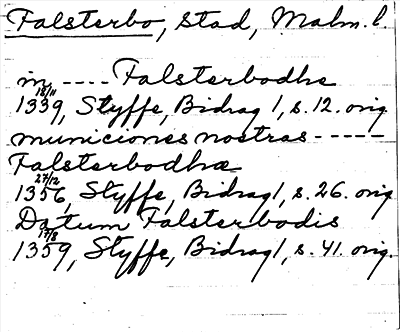 Falsterbo, stad, Malm. l.
in ---- Falsterbodhe
18/11
1339, Styffe, Bidrag 1, s. 12. orig
municiones nostras -----
Falsterbodhæ
27/12
1356, Styffe, Bidrag 1, s. 26. orig
Datum Falsterbodis
17/8
1359, Styffe, Bidrag 1, s. 41. orig.